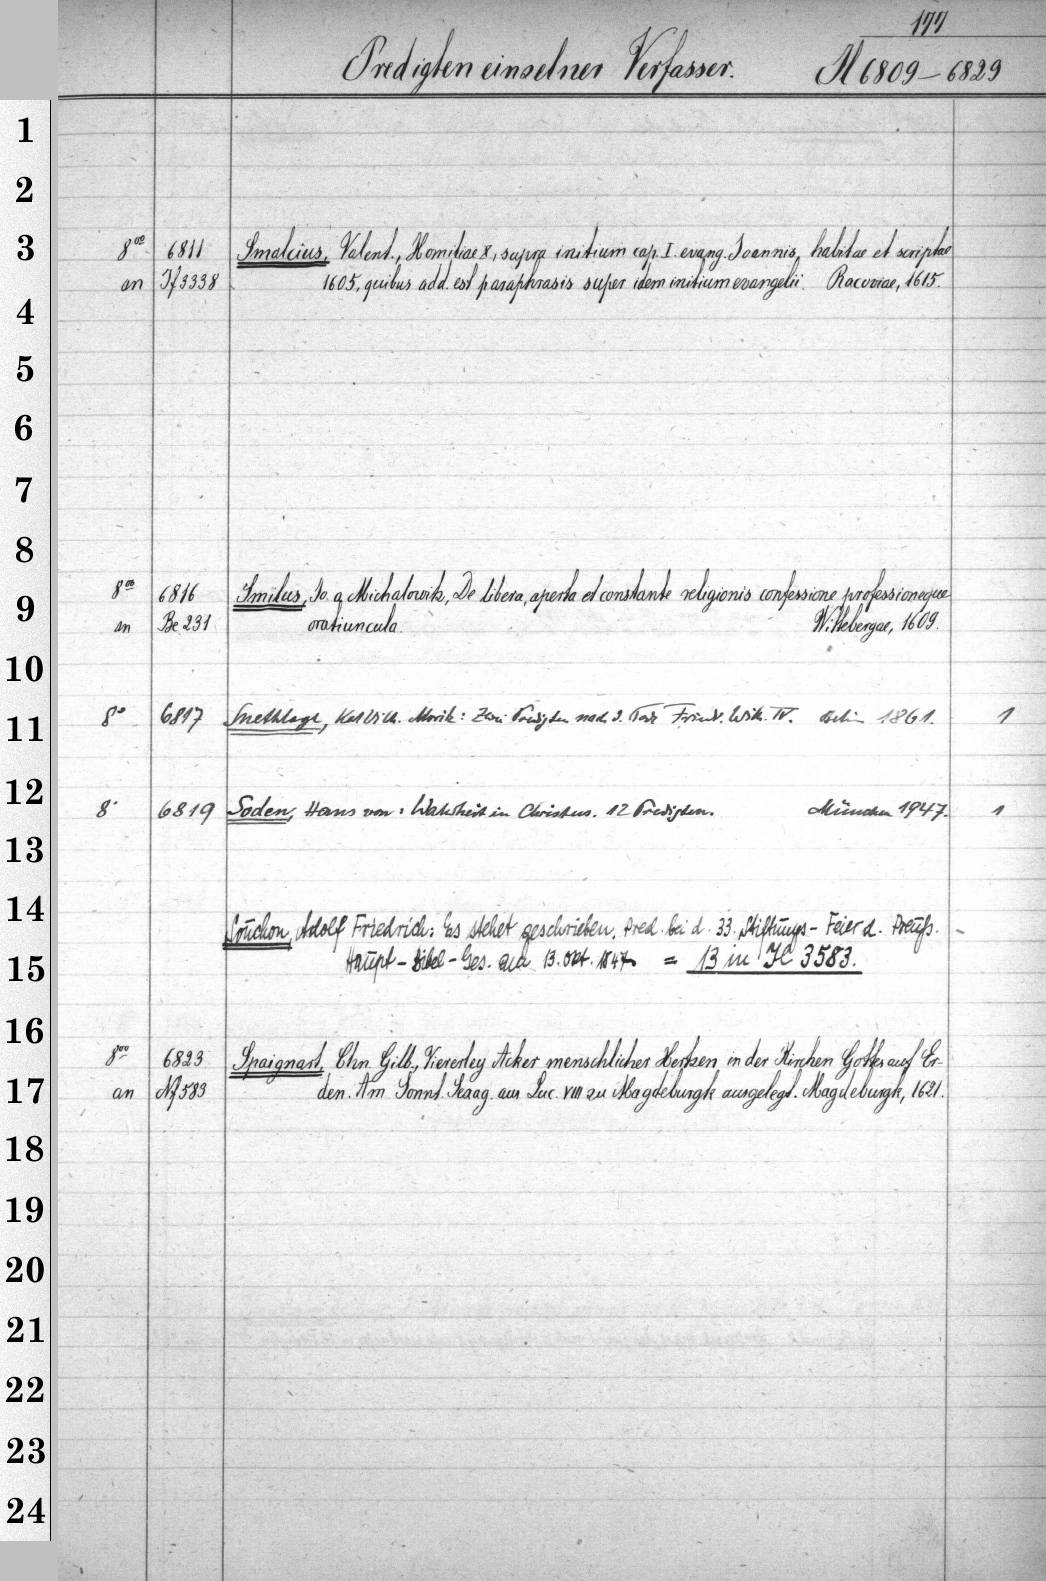 177
Predigten einzelner Verfasser. Jl 6809 – 6829
1
2
3
8°° 6811 Smalcius, Valent., Homiliae X, supra initium cap. I. evang. Joannis, habitae et scriptae
an If 3338 1605, quibus add. est paraphrasis super idem initium evangelii. Racoviae, 1615.
4
5
6
7
8
8°° 6816 Smilus, Jo. a Michalowik, De libera, aperta et constante religionis confessione professioneque
9
an Be 231 oratiuncula. Wittebergae, 1609.
10
11
8° 6817 Snethlage, Karl Wilh. Moritz: Zwei Predigten nach d. Tode Friedr. Wilh. IV. Berlin 1861. 1
12
8° 6819 Soden, Hans von: Wahrheit in Christus. 12 Predigten. München 1947. 1
13
14
Souchon, Adolf Friedrich: Es stehet geschrieben. Pred. bei d. 33. Stiftungs-Feier d. Preuß.
15
Haupt-Bibel-Ges. am 13. Okt. 1847 = 13 in Jl 3583.
16
8°° 6823 Spaignart, Chn. Gilb., Viererley Acker menschlicher Hertzen in der Kirchen Gottes auf Er-
17
an Nf 583 den. Am Sonnt. Sexag. aus Luc. VIII zu Magdeburgk ausgelegt. Magdeburgk, 1621.
18
19
20
21
22
23
24